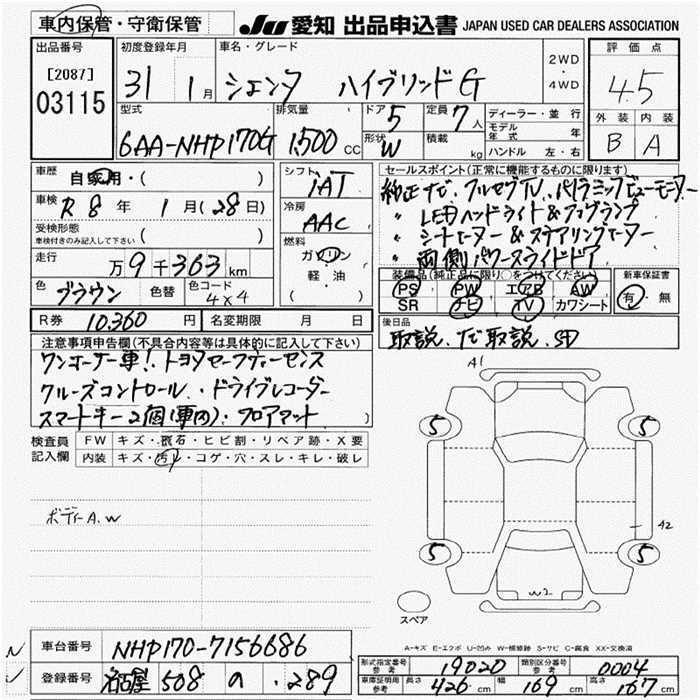 車内保管・守衛保管 JU 愛知 出品申込書 JAPAN USED CAR DEALERS ASSOCIATION
出品番号 初度登録年月 車名・グレード 評価点
[2087] 31 1月 シエンタ ハイブリッドG 2WD・4WD 4.5
03115
型式 排気量 ドア 5 定員 7人 ディーラー・並行 外装 内装
6AA-NHP170G 1,500 CC 形状 W 積載 kg モデル年 B A
ハンドル 左・右
車歴 自家用・( ) シフト IAT セールスポイント(正常に機能するものに限ります)
車検 R 8年 1月(28日) 冷房 AAC 純正ナビ、フルセグTV、パノラミックビューモニター
受検形態 〃 LEDヘッドライト&フォグランプ
(車検付きのみ記入して下さい) ( ) 燃料 〃 シートヒーター&ステアリングヒーター
走行 万9千363km ガソリン 〃 両側パワースライドドア
軽・油
色 ブラウン 色替 色コード 4X4 ( ) 装備品(純正品に限り○をつけてください) 新車保証書
PS PW エアB AW 有・無
SR ナビ TV カワシート
R券 10,360円 名変期限 月 日 後日品
取説、ナビ取説、SD
注意事項申告欄(不具合内容等は具体的に記入して下さい)
ワンオーナー車!、トヨタセーフティーセンス
クルーズコントロール・ドライブレコーダー
スマートキー2個(車内)・フロアマット
検査員記入欄 FW キズ・飛石・ヒビ割・リペア跡・X要
内装 キズ・汚レ・コゲ・穴・スレ・キレ・破レ
ボディーA.W
A1
5 5
A2
5 5
W2
スペア
A-キズ E-エクボ U-凹み W-補修跡 S-サビ C-腐食 XX-交換済
車台番号 NHP170-7156686
登録番号 名古屋 508 の ・289
形式指定番号 参考 19020 類別区分番号 参考 0004
車庫証明用 参考 長さ 426cm 幅 169cm 高さ 167cm